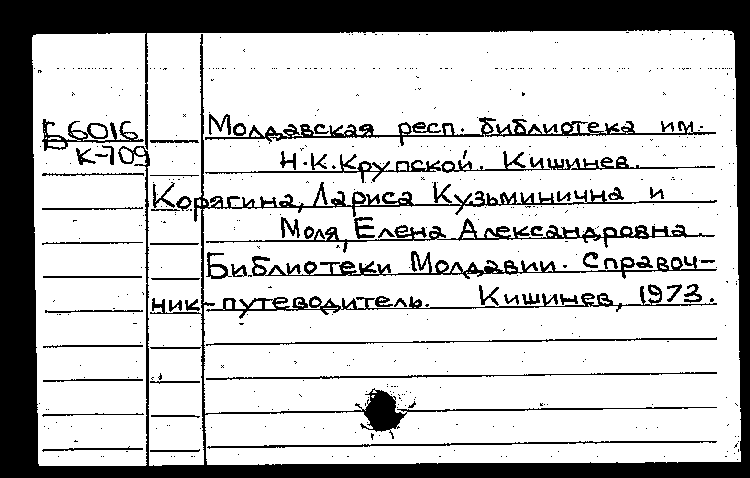 Б6016 Молдавская респ. библиотека им.
К-709 Н.К.Крупской. Кишинев.
Корягина, Лариса Кузьминична и
Моля, Елена Александровна.
Библиотеки Молдавии. Справоч-
ник-путеводитель. Кишинев, 1973.